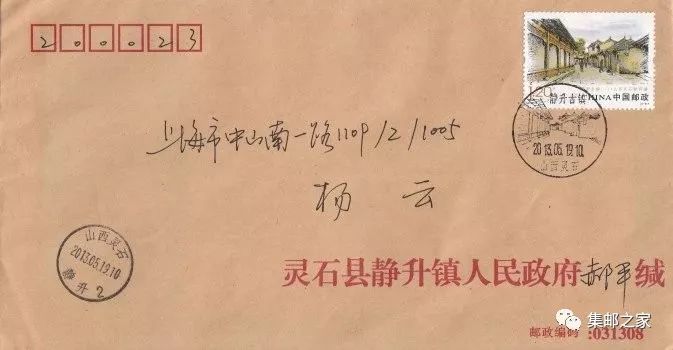 200023
静升古镇 CHINA 中国邮政
2013.05.19.10
山西灵石
上海市中山南一路1109/2/1005
杨云
山西灵石
2013.05.19.10
静升 2
灵石县静升镇人民政府 郝平 缄
邮政编码:031308
集邮之家